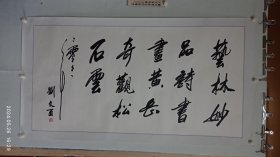 藝林妙
品詩書
畫黄岳
奇觀松
石雲
劉文西